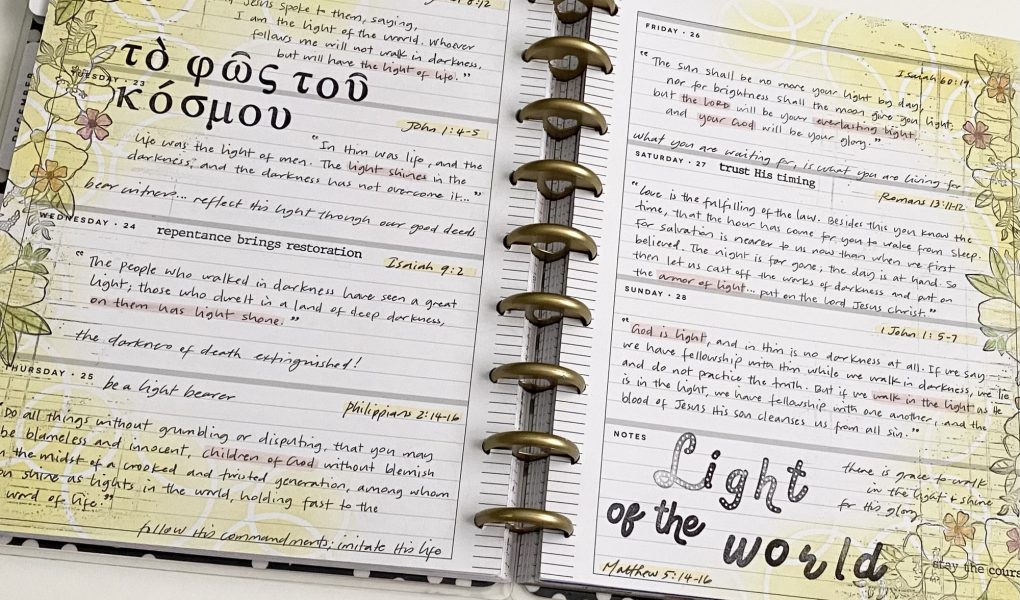 8:12
Jesus spoke to them, saying,
I am the light of the world. Whoever
follows me will not walk in darkness,
but will have the light of life."
TUESDAY · 23
τὸ φῶς τοῦ
κόσμου
John 1:4-5
"In Him was life, and the
life was the light of men. The light shines in the
darkness, and the darkness has not overcome it..."
bear witness... reflect His light through our good deeds
WEDNESDAY · 24
repentance brings restoration
Isaiah 9:2
"The people who walked in darkness have seen a great
light; those who dwelt in a land of deep darkness,
on them has light shone."
the darkness of death extinguished!
THURSDAY · 25
be a light bearer
Philippians 2:14-16
"Do all things without grumbling or disputing, that you may
be blameless and innocent, children of God without blemish
in the midst of a crooked and twisted generation, among whom
you shine as lights in the world, holding fast to the
word of life."
follow His commandments; imitate His life
FRIDAY · 26
Isaiah 60:19
"The sun shall be no more your light by day,
nor for brightness shall the moon give you light,
but the LORD will be your everlasting light,
and your God will be your glory."
what you are waiting for is what you are living for
SATURDAY · 27
trust His timing
Romans 13:11-12
"Love is the fulfilling of the law. Besides this you know the
time, that the hour has come for you to wake from sleep.
For salvation is nearer to us now than when we first
believed. The night is far gone; the day is at hand. So
then let us cast off the works of darkness and put on
the armor of light... put on the Lord Jesus Christ."
SUNDAY · 28
1 John 1:5-7
"God is light, and in Him is no darkness at all. If we say
we have fellowship with Him while we walk in darkness, we lie
and do not practice the truth. But if we walk in the light as He
is in the light, we have fellowship with one another, and the
blood of Jesus His son cleanses us from all sin."
NOTES
Light
of the
world
there is grace to walk
in the light & shine
for His glory
Matthew 5:14-16
stay the cours